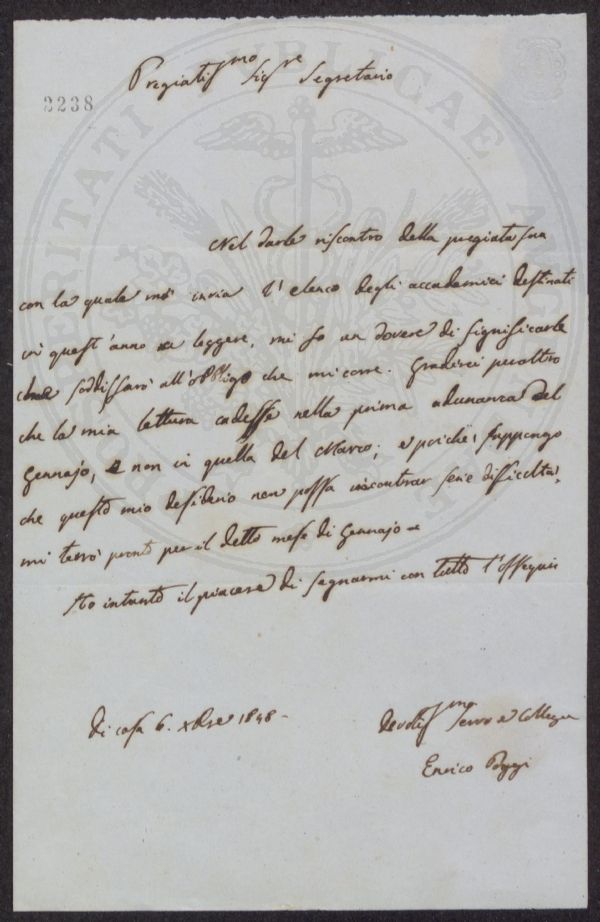 Pregiatissmo Sigre Segretario
2238
Nel darle riscontro della pregiata sua
con la quale m'invia l'elenco degli accademici destinati
in quest'anno a leggere, mi fo un dovere di significarle
che soddisfarò all'obbligo che mi corre. Gradirei peraltro
che la mia lettura cadesse nella prima adunanza del
Gennajo, e non in quella del Marzo; e poiché suppongo
che questo mio desiderio non possa incontrar serie difficoltà,
mi terrò pronto per il detto mese di Gennajo
Ho intanto il piacere di segnarmi con tutto l'ossequio
Di casa 6. Xbre 1848
Devotissmo servo e Collega
Enrico Poggi